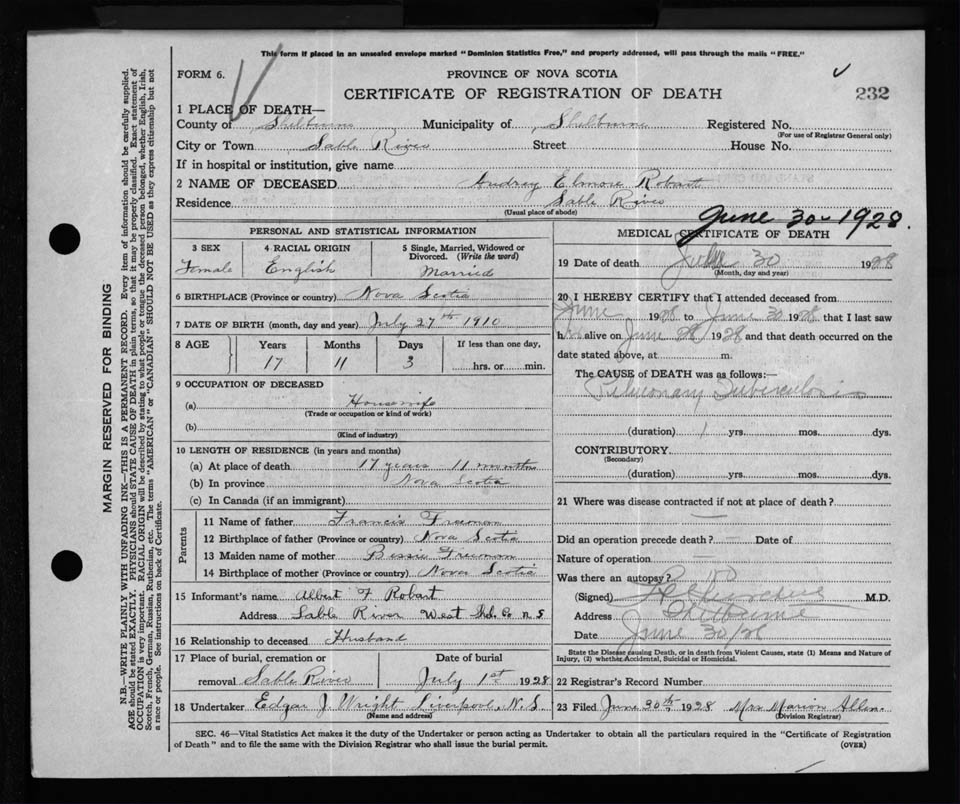 This form if placed in an unsealed envelope marked "Dominion Statistics Free," and properly addressed, will pass through the mails "FREE."
FORM 6.
PROVINCE OF NOVA SCOTIA
CERTIFICATE OF REGISTRATION OF DEATH
232
1 PLACE OF DEATH—
County of Shelburne Municipality of Shelburne Registered No.
(For use of Registrar General only)
City or Town Sable River Street House No.
If in hospital or institution, give name
2 NAME OF DECEASED Audrey Elmore Robart
Residence Sable River
(Usual place of abode)
June 30 - 1928.
PERSONAL AND STATISTICAL INFORMATION
3 SEX 4 RACIAL ORIGIN 5 Single, Married, Widowed or Divorced. (Write the word)
Female English Married
6 BIRTHPLACE (Province or country) Nova Scotia
7 DATE OF BIRTH (month, day and year) July 27th 1910
8 AGE Years Months Days If less than one day,
17 11 3 hrs. or min.
9 OCCUPATION OF DECEASED
(a) Housewife
(Trade or occupation or kind of work)
(b)
(Kind of industry)
10 LENGTH OF RESIDENCE (in years and months)
(a) At place of death 17 years 11 months
(b) In province Nova Scotia
(c) In Canada (if an immigrant)
Parents
11 Name of father Francis Freeman
12 Birthplace of father (Province or country) Nova Scotia
13 Maiden name of mother Bessie Freeman
14 Birthplace of mother (Province or country) Nova Scotia
15 Informant's name Albert F Robart
Address Sable River West Shel. Co N S
16 Relationship to deceased Husband
17 Place of burial, cremation or Date of burial
removal Sable River July 1st 1928
18 Undertaker Edgar J Wright Liverpool, N.S.
(Name and address)
MEDICAL CERTIFICATE OF DEATH
19 Date of death 30 1928
(Month, day and year)
20 I HEREBY CERTIFY that I attended deceased from
June 1928 to June 30 1928 that I last saw
her alive on June 28 1928 and that death occurred on the
date stated above, at m.
The CAUSE of DEATH was as follows:
Pulmonary Tuberculosis
(duration) 1 yrs. mos. dys.
CONTRIBUTORY
(Secondary)
(duration) yrs. mos. dys.
21 Where was disease contracted if not at place of death?
—
Did an operation precede death? — Date of
Nature of operation —
Was there an autopsy? no
(Signed) M.D.
Address Shelburne
Date June 30/28
State the Disease causing Death, or in death from Violent Causes, state (1) Means and Nature of
Injury, (2) whether Accidental, Suicidal or Homicidal.
22 Registrar's Record Number
23 Filed June 30th 1928 Mrs Marion Allen
(Division Registrar)
SEC. 46—Vital Statistics Act makes it the duty of the Undertaker or person acting as Undertaker to obtain all the particulars required in the "Certificate of Registration
of Death" and to file the same with the Division Registrar who shall issue the burial permit.
(OVER)
MARGIN RESERVED FOR BINDING
N.B.—WRITE PLAINLY WITH UNFADING INK—THIS IS A PERMANENT RECORD. Every item of information should be carefully supplied.
AGE should be stated EXACTLY. PHYSICIANS should STATE CAUSE OF DEATH in plain terms, so that it may be properly classified. Exact statement of
OCCUPATION is very important. RACIAL ORIGIN will be described by stating to what people or tongue the deceased person belonged, whether English, Irish,
Scotch, French, German, Russian, Ruthenian, etc. The terms "AMERICAN" or "CANADIAN" SHOULD NOT BE USED as they express citizenship but not
a race or people. See instructions on back of Certificate.